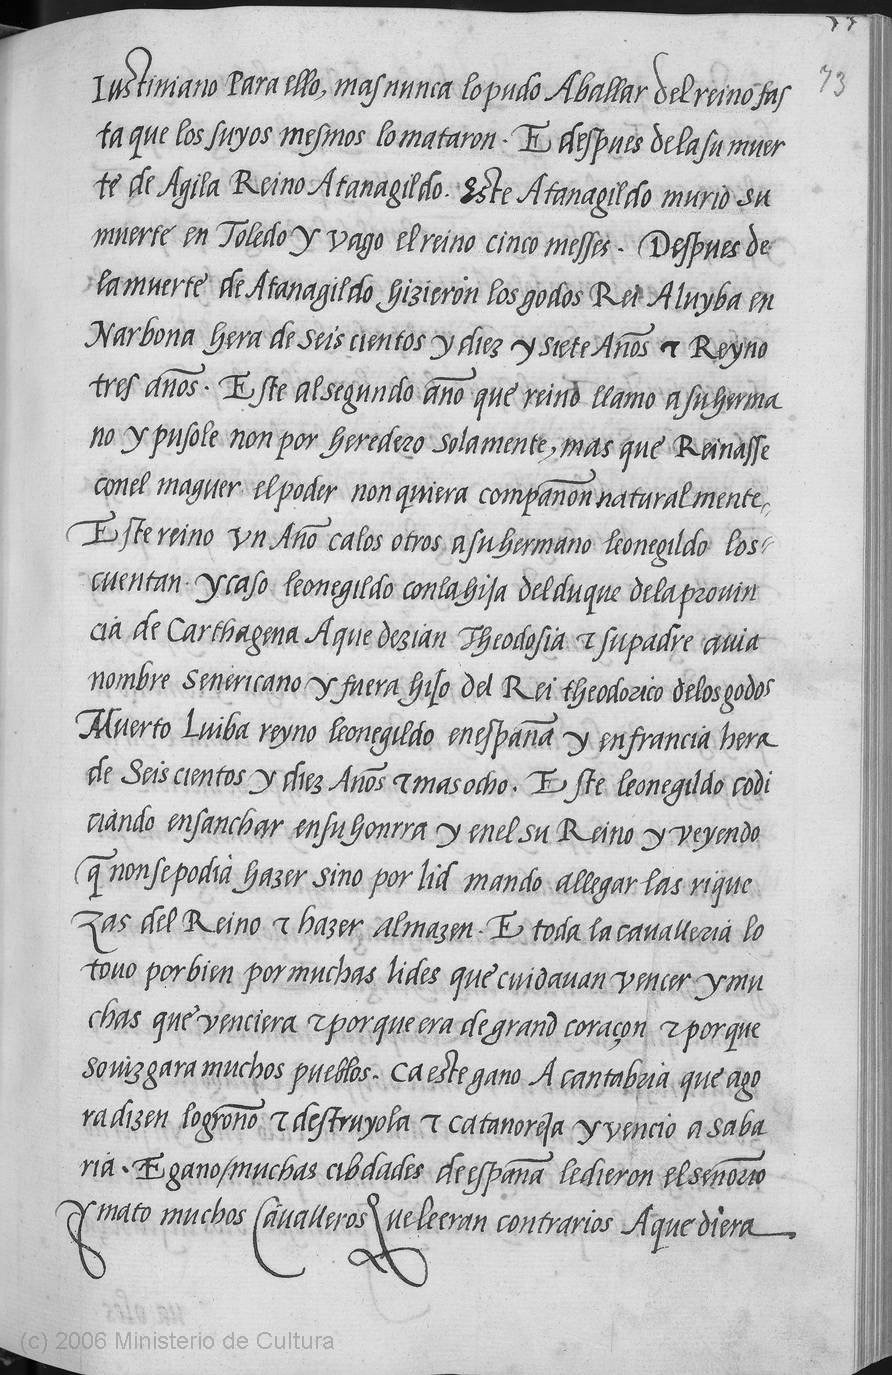 73
Iustiniano Para ello, mas nunca lo pudo Aballar del reino fas
ta que los suyos mesmos lo mataron. E despues dela su muer
te de Agila Reino Atanagildo. Este Atanagildo murio su
muerte en Toledo y vago el reino cinco messes. Despues de
la muerte de Atanagildo hizieron los godos Rei Aluyba en
Narbona hera de seis cientos y diez y siete Años τ Reyno
tres años. Este al segundo año que reino llamo a su herma
no y pusole non por heredero solamente, mas que Reinasse
conel maguer el poder non quiera compañon natural mente,
Este reino vn Año ca los otros a su hermano leonegildo los
cuentan. y caso leonegildo con la hija del duque dela prouin
cia de Carthagena A que dezian Theodosia τ su padre auia
nombre senericano y fuera hijo del Rei theodorico delos godos
Muerto Luiba reyno leonegildo en españa y en francia hera
de Seis cientos y diez Años τ mas ocho. Este leonegildo codi
ciando ensanchar en su honrra y enel su Reino y veyendo
q̃ non se podia hazer sino por lid mando allegar las rique
zas del Reino τ hazer almazen. E toda la caualleria lo
touo por bien por muchas lides que cuidauan vencer y mu
chas que venciera τ porque era de grand coraçon τ porque
souizgara muchos pueblos. Ca este gano A cantabria que ago
ra dizen logroño τ destruyola τ catanoreja y vencio a saba
ria. E gano/muchas cibdades de españa le dieron el señorio
y mato muchos Caualleros Que le eran contrarios A que diera
(c) 2006 Ministerio de Cultura